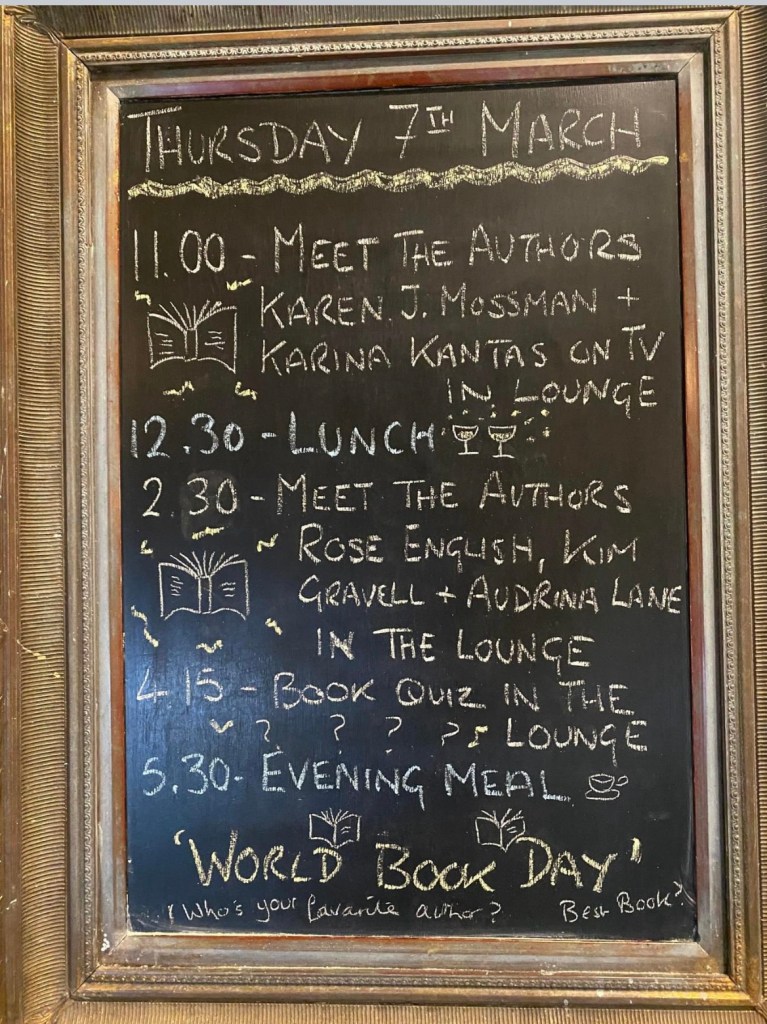 THURSDAY 7TH MARCH
11.00 - MEET THE AUTHORS
KAREN. J. MOSSMAN +
KARINA KANTAS ON TV
IN LOUNGE
12.30 - LUNCH
2.30 - MEET THE AUTHORS
ROSE ENGLISH, KIM
GRAVELL + AUDRINA LANE
IN THE LOUNGE
4.15 - BOOK QUIZ IN THE
? ? ? ? LOUNGE
5.30 - EVENING MEAL
'WORLD BOOK DAY'
Who's your favarite author? Best Book?